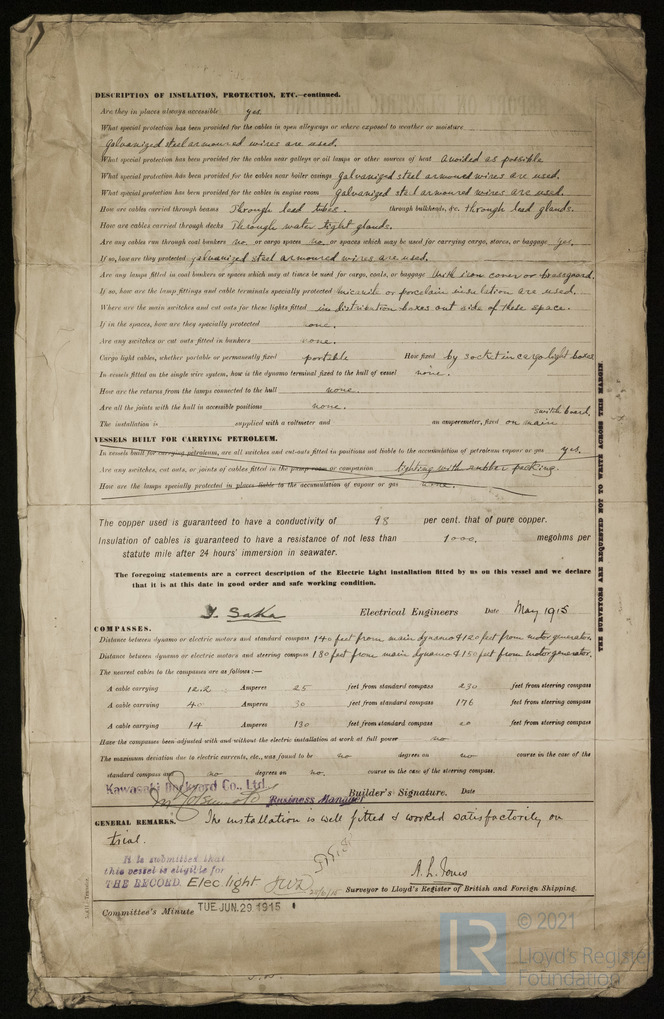 DESCRIPTION OF INSULATION, PROTECTION, ETC.—continued.
Are they in places always accessible yes.
What special protection has been provided for the cables in open alleyways or where exposed to weather or moisture
Galvanized steel armoured wires are used.
What special protection has been provided for the cables near galleys or oil lamps or other sources of heat avoided as possible
What special protection has been provided for the cables near boiler casings galvanized steel armoured wires are used.
What special protection has been provided for the cables in engine room galvanized steel armoured wires are used.
How are cables carried through beams Through lead tubes. through bulkheads, &c. through lead glands.
How are cables carried through decks Through water tight glands.
Are any cables run through coal bunkers no or cargo spaces no or spaces which may be used for carrying cargo, stores, or baggage yes.
If so, how are they protected galvanized steel armoured wires are used.
Are any lamps fitted in coal bunkers or spaces which may at times be used for cargo, coals, or baggage With iron cover or brassguard.
If so, how are the lamp fittings and cable terminals specially protected micanite or porcelain insulation are used.
Where are the main switches and cut outs for these lights fitted in distribution boxes out side of these space.
If in the spaces, how are they specially protected none.
Are any switches or cut outs fitted in bunkers none.
Cargo light cables, whether portable or permanently fixed portable How fixed by socket in cargo light boxes
In vessels fitted on the single wire system, how is the dynamo terminal fixed to the hull of vessel none.
How are the returns from the lamps connected to the hull none.
Are all the joints with the hull in accessible positions none.
The installation is supplied with a voltmeter and an amperemeter, fixed on main switch board.
VESSELS BUILT FOR CARRYING PETROLEUM.
In vessels built for carrying petroleum, are all switches and cut-outs fitted in positions not liable to the accumulation of petroleum vapour or gas yes.
Are any switches, cut outs, or joints of cables fitted in the pump room or companion lighting with rubber packing.
How are the lamps specially protected in places liable to the accumulation of vapour or gas none.
The copper used is guaranteed to have a conductivity of 98 per cent. that of pure copper.
Insulation of cables is guaranteed to have a resistance of not less than 1000. megohms per
statute mile after 24 hours' immersion in seawater.
The foregoing statements are a correct description of the Electric Light installation fitted by us on this vessel and we declare
that it is at this date in good order and safe working condition.
Electrical Engineers Date May 1915
COMPASSES.
Distance between dynamo or electric motors and standard compass 140 feet from main dynamo & 120 feet from motor generator.
Distance between dynamo or electric motors and steering compass 180 feet from main dynamo & 150 feet from motor generator.
The nearest cables to the compasses are as follows:—
A cable carrying 12.2 Amperes 25 feet from standard compass 230 feet from steering compass
A cable carrying 40 Amperes 30 feet from standard compass 176 feet from steering compass
A cable carrying 14 Amperes 130 feet from standard compass 20 feet from steering compass
Have the compasses been adjusted with and without the electric installation at work at full power no
The maximum deviation due to electric currents, etc., was found to be no degrees on no course in the case of the
standard compass and no degrees on no. course in the case of the steering compass.
Kawasaki Dockyard Co., Ltd.
Business Manager Builder's Signature. Date
GENERAL REMARKS. The installation is well fitted & worked satisfactorily on
trial.
It is submitted that
this vessel is eligible for
THE RECORD. Elec. light
A. L. Jones
Surveyor to Lloyd's Register of British and Foreign Shipping.
Committee's Minute TUE. JUN. 29. 1915
THE SURVEYORS ARE REQUESTED NOT TO WRITE ACROSS THIS MARGIN
LR
© 2021
Lloyd's Register
Foundation